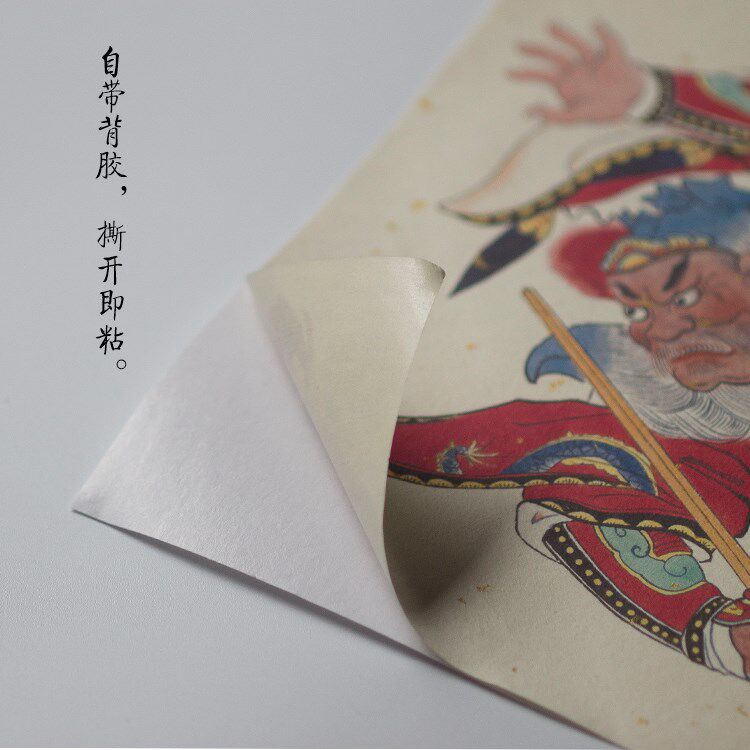 自带背胶，撕开即粘。